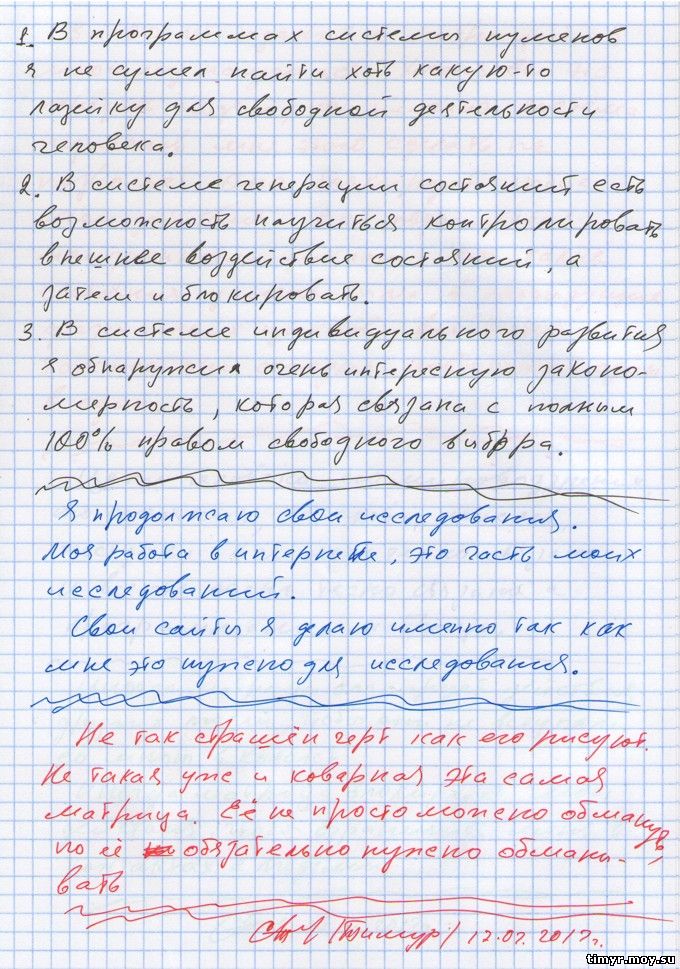 1. В программах системы нуменов
я не сумел найти хоть какую-то
лазейку для свободной деятельности
человека.
2. В системе генерации состояний есть
возможность научиться контролировать
внешнее воздействие состояний, а
затем и блокировать.
3. В системе индивидуального развития
я обнаружил очень интересную законо-
мерность, которая связана с полным
100% правом свободного выбора.
Я продолжаю свои исследования.
Моя работа в интернете, это часть моих
исследований.
Свои сайты я делаю именно так как
мне это нужно для исследования.
Не так страшен чёрт как его рисуют.
Не такая уже и коварная эта самая
матрица. Её не просто можно обмануть,
но её обязательно нужно обманы-
вать
(Тимур) 12.07.2017г.
timyr.moy.su